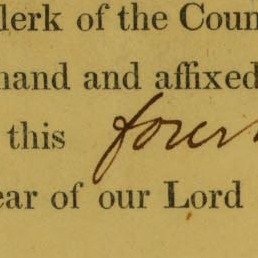 lerk of the Coun
hand and affixed
this four
ear of our Lord